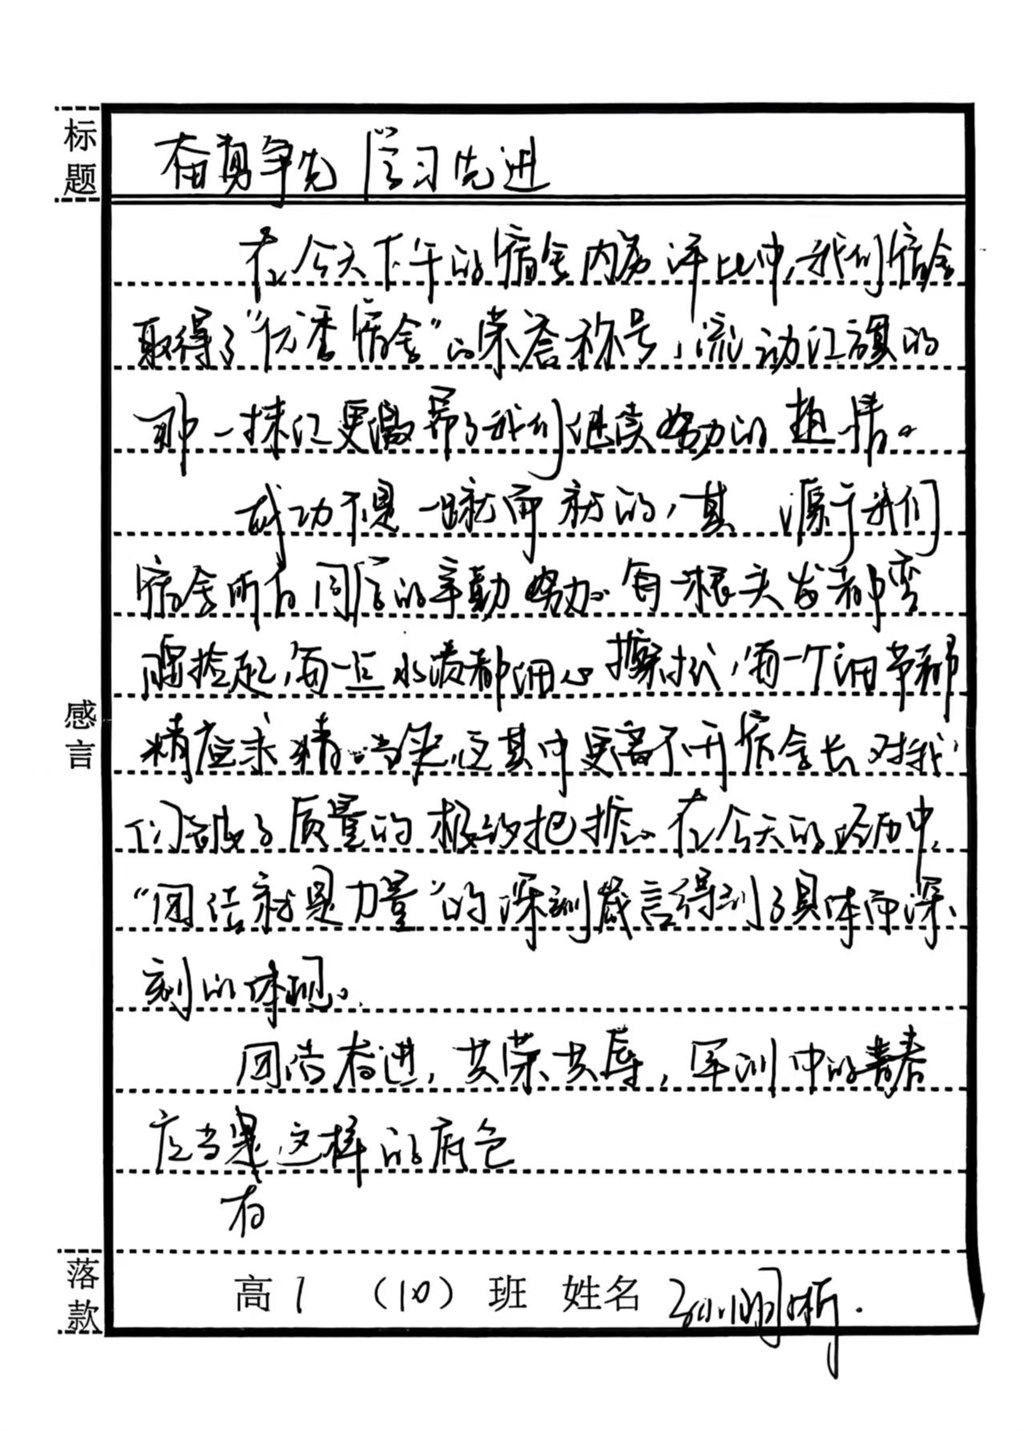 标题
奋勇争先 学习先进
在今天下午的宿舍内务评比中,我们宿舍
取得了“优秀宿舍”的荣誉称号,流动红旗的
那一抹红更激昂了我们继续努力的热情。
成功不是一蹴而就的,其 源于我们
宿舍所有同学的辛勤努力。每一根头发都弯
腰捡起,每一点水渍都细心擦拭,每一个细节都
精益求精。当然,这其中更离不开宿舍长对我
们 质量的极致把握。在今天的经历中,
“团结就是力量”的深刻箴言得到了具体而深
刻的体现。
团结奋进,共荣共辱,军训中的青春
应当是这样的底色
有
感言
落款
高1 (10) 班 姓名